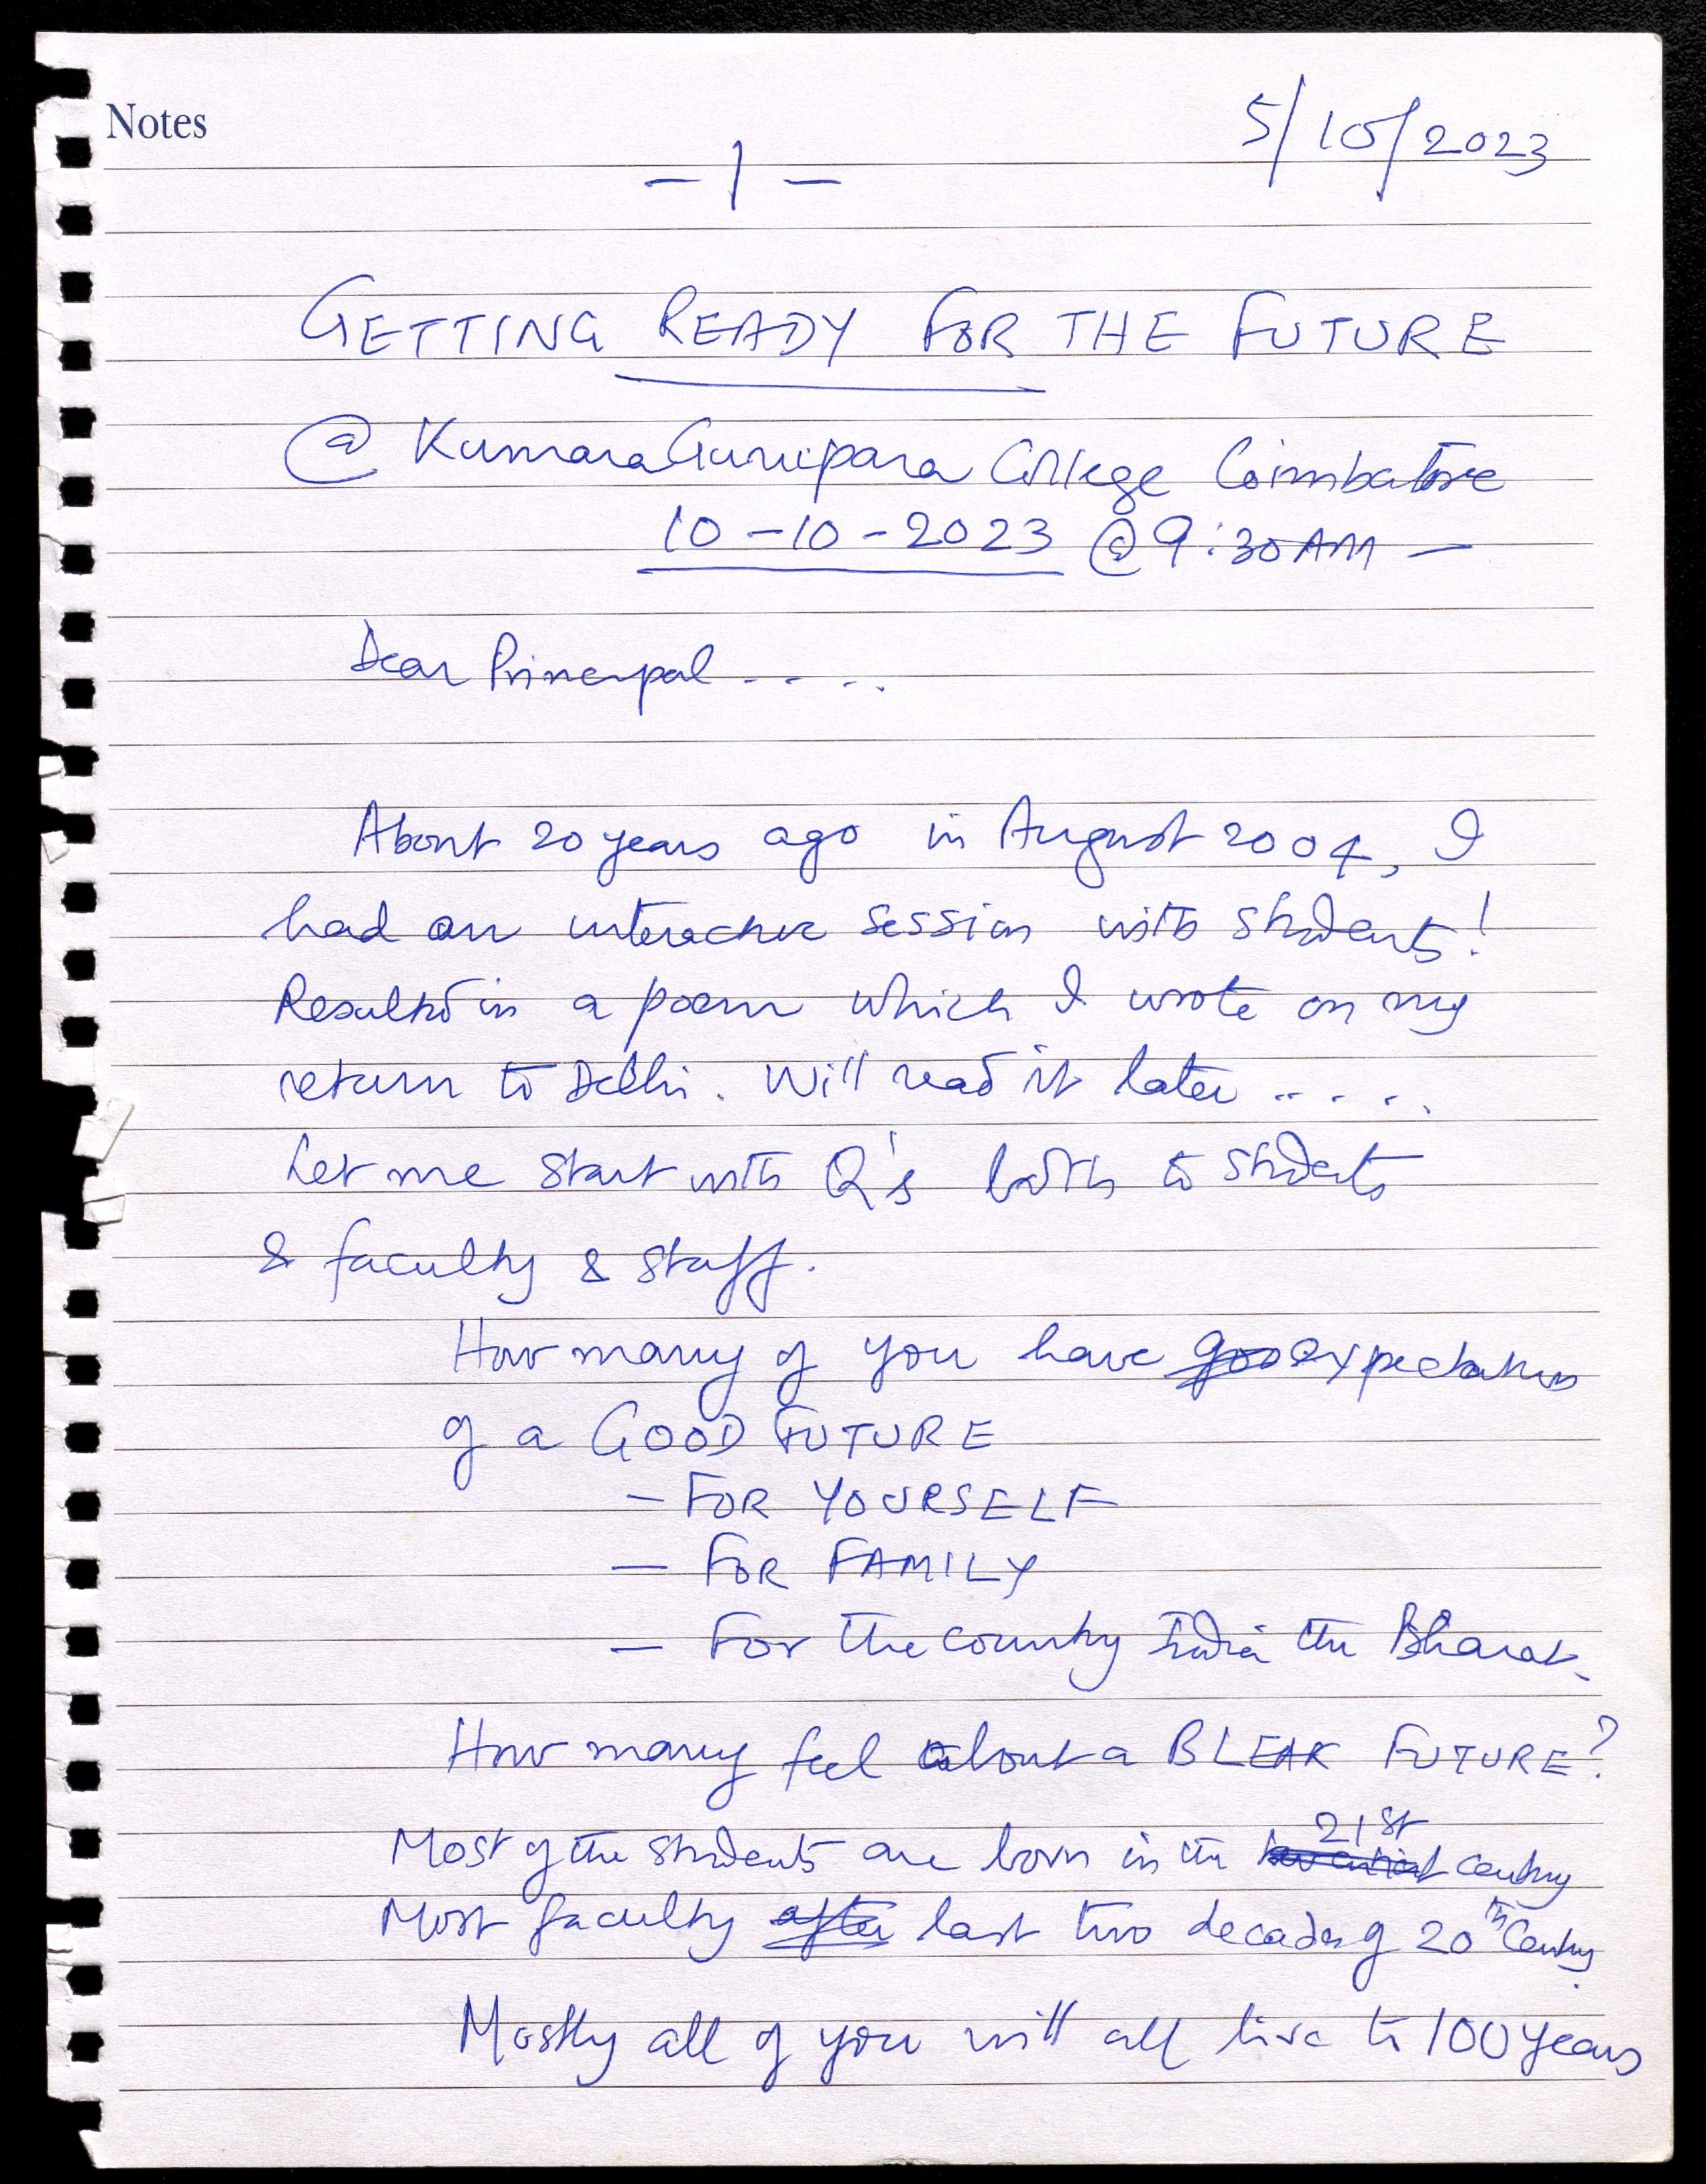 Notes
5/10/2023
- 1 -
GETTING READY FOR THE FUTURE
@ KumaraGurupara College Coimbatore
10-10-2023 @ 9:30AM -
Dear Principal - - . .
About 20 years ago in August 2004, I
had an interactive session with students!
Resulted in a poem which I wrote on my
return to Delhi. Will read it later .. . . .
Let me start with Q's both to students
& faculty & staff.
How many of you have goo expectations
of a GOOD FUTURE
- FOR YOURSELF
- FOR FAMILY
- For the country India the Bharat.
How many feel about a BLEAK FUTURE?
Most of the students are born in the 21st century
Most faculty after last two decades of 20th Century.
Mostly all of you will all live to 100 years